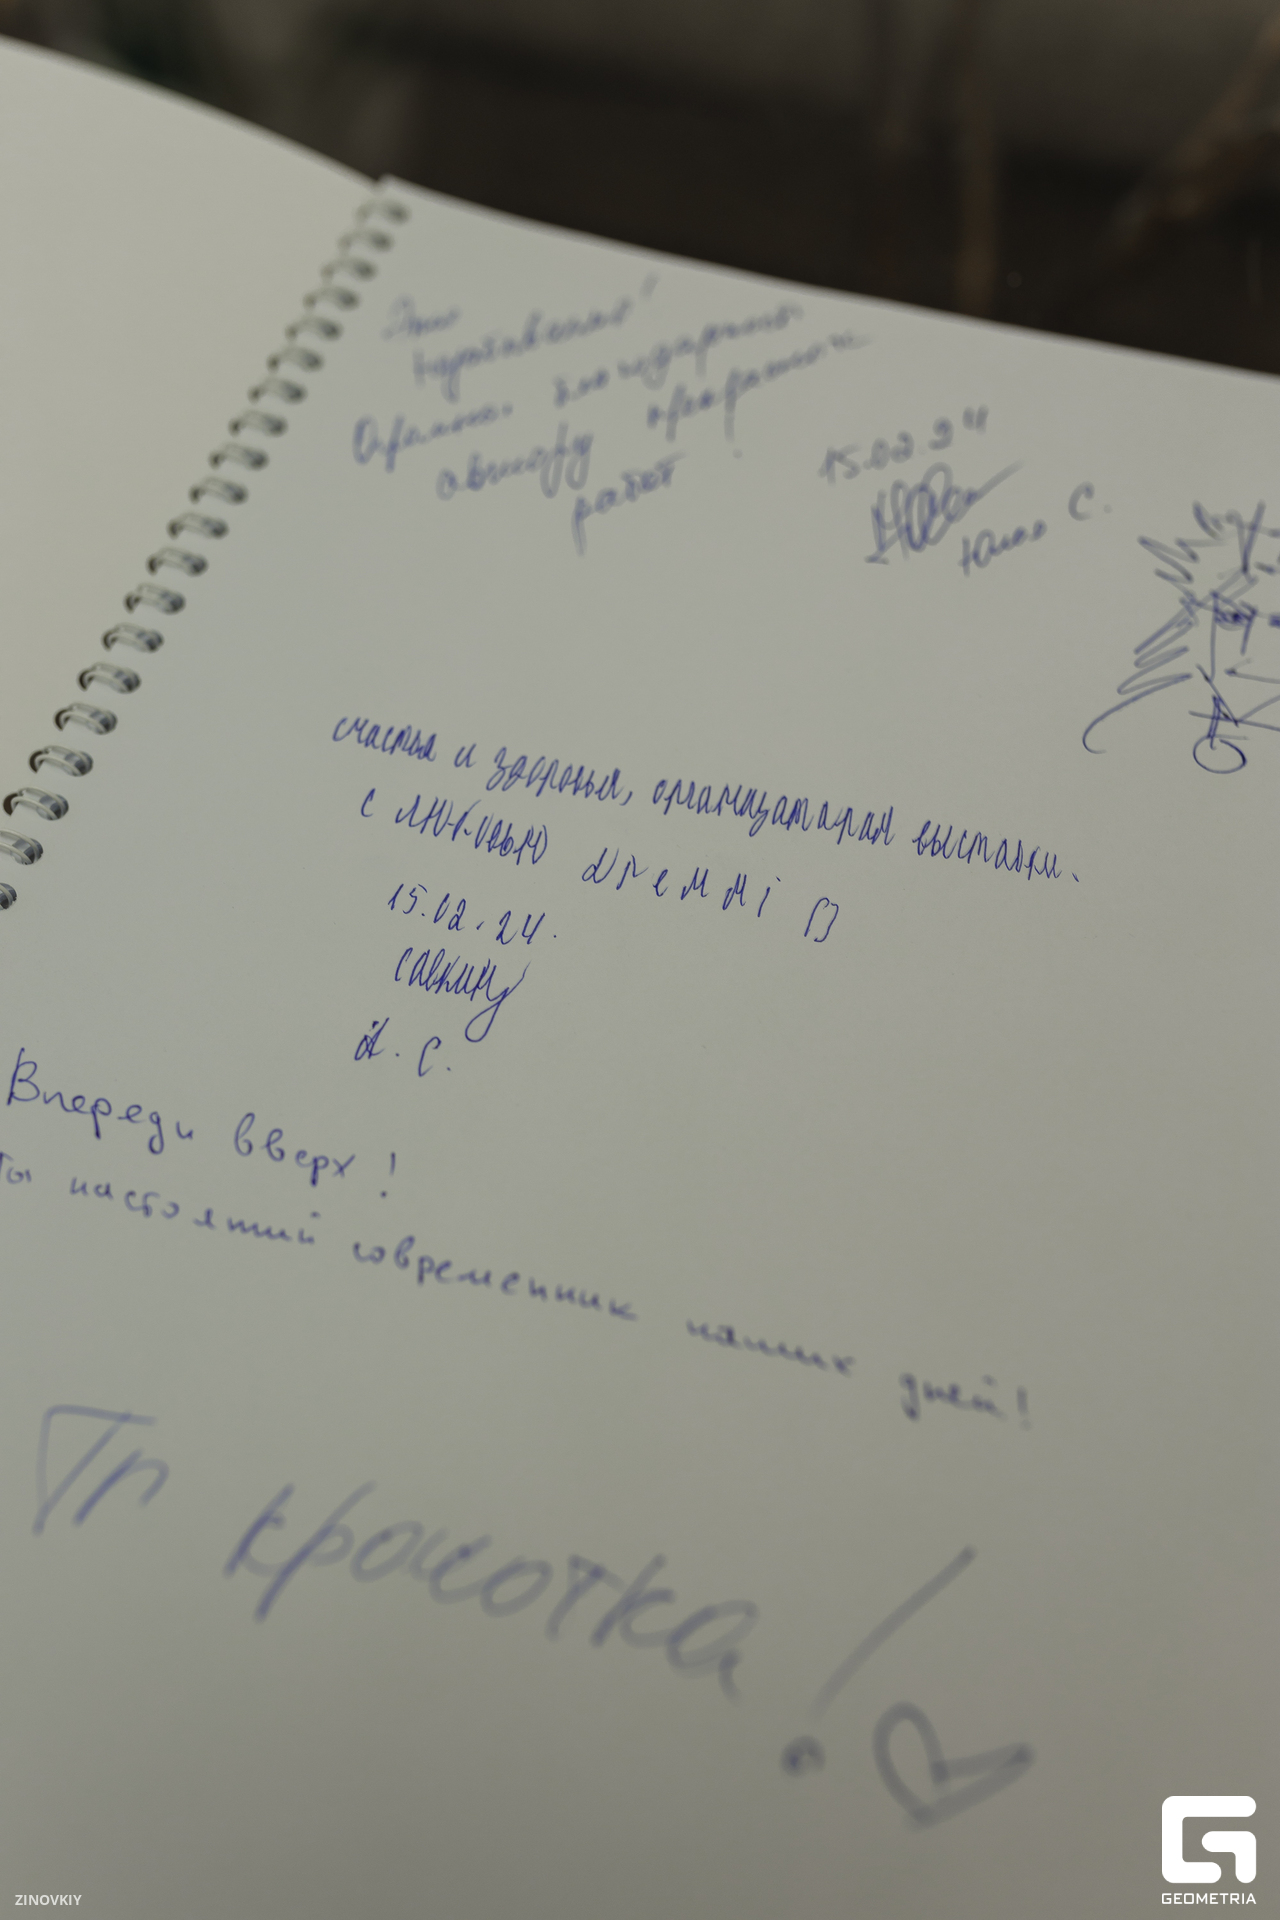 Огромная благодарность
автору прекрасных
работ
15.02.24
Юлия С.
счастья и здоровья, организаторам выставки.
с любовью
15.02.24.
С.
Впереди вверх!
ты настоящий современник наших дней!
Тг красотка!
ZINOVKIY
GEOMETRIA